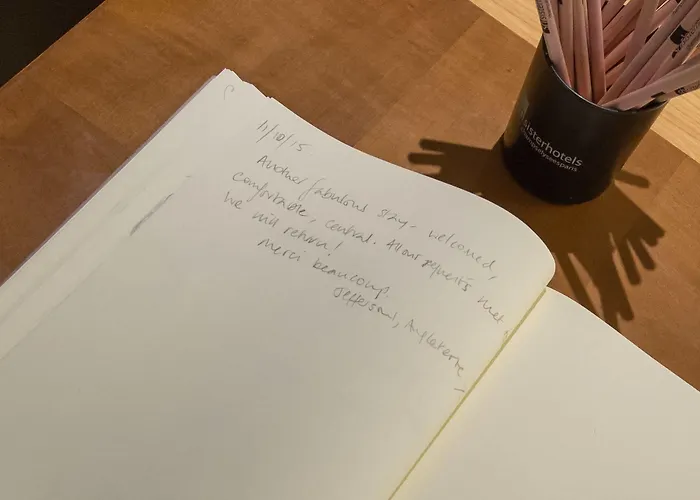 11/10/15.
Another fabulous stay. Welcomed,
comfortable, central. All our requests met.
We will return!
Merci beaucoup.
Jeffersons, Angleterre
sisterhotels